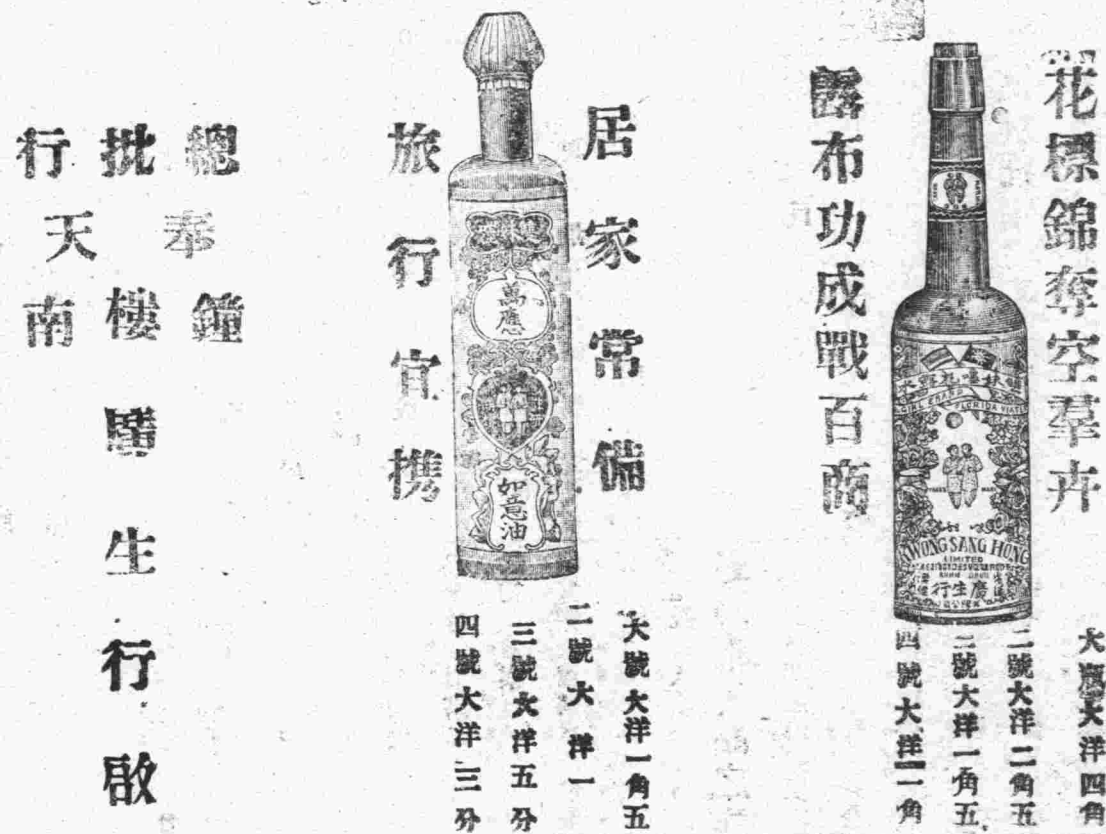 花標錦奪空羣卉
露布功成戰百商
GIRL BRAND
FLORIDA WATER
KWONG SANG HONG
LIMITED
行生廣
大瓶大洋四角
二號大洋二角五
三號大洋一角五
四號大洋角
居家常備
旅行宜携
萬應
如意油
大號大洋一角五
二號大洋一
三號大洋五分
四號大洋三分
總批行
奉天
鐘樓南
廣生行啟